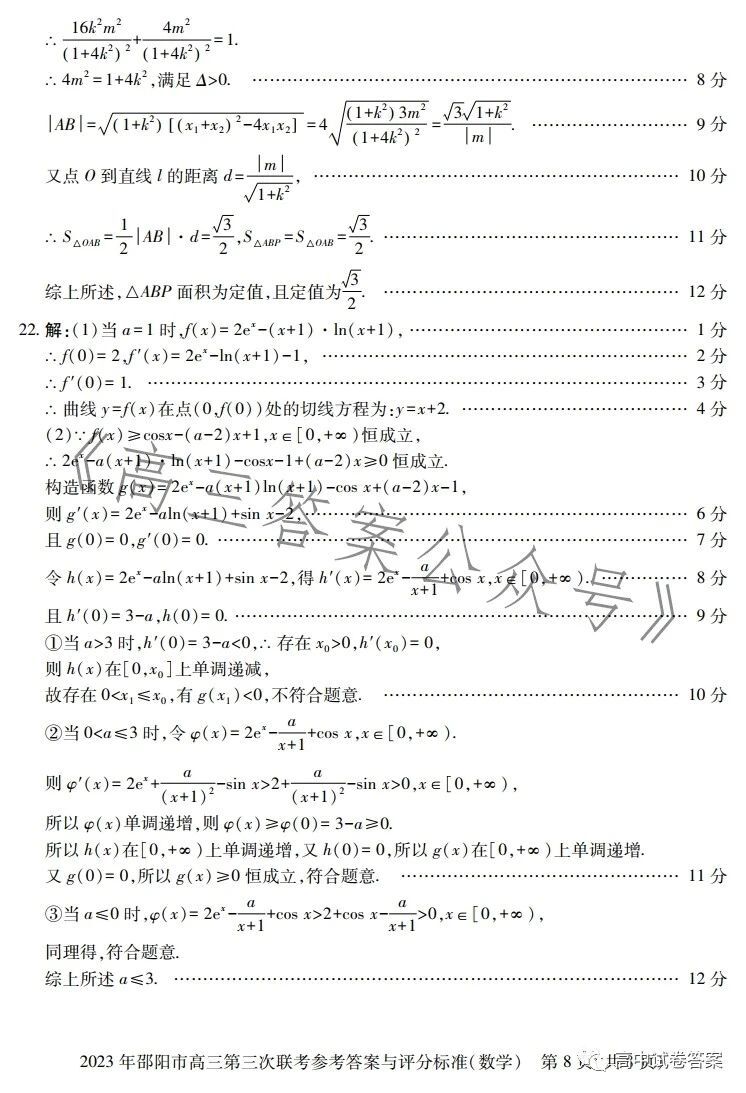 ∴ 16k²m²/(1+4k²)² + 4m²/(1+4k²)² = 1.
∴ 4m²=1+4k²,满足 Δ>0. …… 8 分
|AB|=√((1+k²)[(x₁+x₂)²-4x₁x₂]) =4√((1+k²)3m²/(1+4k²)²) = √3√(1+k²)/|m|. …… 9 分
又点 O 到直线 l 的距离 d=|m|/√(1+k²), …… 10 分
∴ S△OAB = 1/2|AB|·d=√3/2,S△ABP=S△OAB=√3/2. …… 11 分
综上所述,△ABP 面积为定值,且定值为√3/2. …… 12 分
22. 解:(1)当 a=1 时,f(x)=2eˣ-(x+1)·ln(x+1), …… 1 分
∴ f(0)=2,f′(x)=2eˣ-ln(x+1)-1, …… 2 分
∴ f′(0)=1. …… 3 分
∴ 曲线 y=f(x)在点(0,f(0))处的切线方程为:y=x+2. …… 4 分
(2)∵ f(x)≥cosx-(a-2)x+1,x∈[0,+∞)恒成立,
∴ 2eˣ-a(x+1)·ln(x+1)-cosx-1+(a-2)x≥0 恒成立.
构造函数 g(x)=2eˣ-a(x+1)ln(x+1)-cos x+(a-2)x-1,
则 g′(x)=2eˣ-aln(x+1)+sin x-2, …… 6 分
且 g(0)=0,g′(0)=0. …… 7 分
令 h(x)=2eˣ-aln(x+1)+sin x-2,得 h′(x)=2eˣ-a/(x+1)+cos x,x∈[0,+∞). …… 8 分
且 h′(0)=3-a,h(0)=0. …… 9 分
①当 a>3 时,h′(0)=3-a<0,∴ 存在 x₀>0,h′(x₀)=0,
则 h(x)在[0,x₀]上单调递减,
故存在 0<x₁≤x₀,有 g(x₁)<0,不符合题意. …… 10 分
②当 0<a≤3 时,令 φ(x)=2eˣ-a/(x+1)+cos x,x∈[0,+∞).
则 φ′(x)=2eˣ+a/(x+1)²-sin x>2+a/(x+1)²-sin x>0,x∈[0,+∞),
所以 φ(x)单调递增,则 φ(x)≥φ(0)=3-a≥0.
所以 h(x)在[0,+∞)上单调递增,又 h(0)=0,所以 g(x)在[0,+∞)上单调递增.
又 g(0)=0,所以 g(x)≥0 恒成立,符合题意. …… 11 分
③当 a≤0 时,φ(x)=2eˣ-a/(x+1)+cos x>2+cos x-a/(x+1)>0,x∈[0,+∞),
同理得,符合题意.
综上所述 a≤3. …… 12 分
《高三答案公众号》
2023 年邵阳市高三第三次联考参考答案与评分标准(数学) 第 8 页 共
高中试卷答案